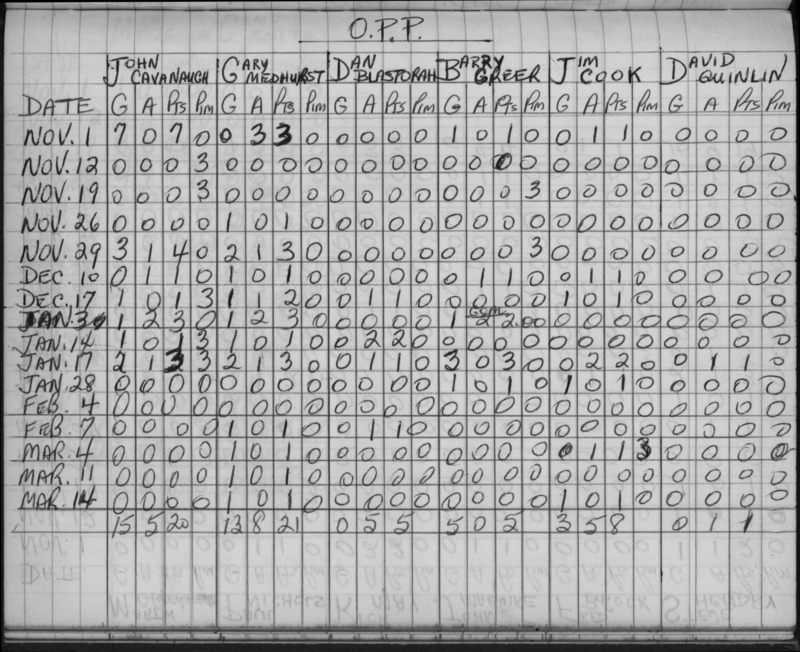 O.P.P.
JOHN CAVANAUGH GARY MEDHURST DAN BLASTORAH BARRY GREER JIM COOK DAVID QUINLIN
DATE G A Pts Pim G A Pts Pim G A Pts Pim G A Pts Pim G A Pts Pim G A Pts Pim
NOV. 1 7 0 7 0 0 3 3 0 0 0 0 0 1 0 1 0 0 1 1 0 0 0 0 0
NOV. 12 0 0 0 3 0 0 0 0 0 0 0 0 0 0 0 0 0 0 0 0 0 0 0 0
NOV. 19 0 0 0 3 0 0 0 0 0 0 0 0 0 0 0 3 0 0 0 0 0 0 0 0
NOV. 26 0 0 0 0 1 0 1 0 0 0 0 0 0 0 0 0 0 0 0 0 0 0 0 0
NOV. 29 3 1 4 0 2 1 3 0 0 0 0 0 0 0 0 3 0 0 0 0 0 0 0 0
DEC. 10 0 1 1 0 1 0 1 0 0 0 0 0 0 1 1 0 0 1 1 0 0 0 0 0
DEC. 17 1 0 1 3 1 1 2 0 0 1 1 0 0 0 0 0 1 0 1 0 0 0 0 0
JAN. 3 1 2 3 0 1 2 3 0 0 0 0 0 1 2 2 0 0 0 0 0 0 0 0 0
JAN. 14 1 0 1 3 1 0 1 0 0 2 2 0 0 0 0 0 0 0 0 0 0 0 0 0
JAN. 17 2 1 3 3 2 1 3 0 0 1 1 0 3 0 3 0 0 2 2 0 0 1 1 0
JAN. 28 0 0 0 0 0 0 0 0 0 0 0 0 1 0 1 0 1 0 1 0 0 0 0 0
FEB. 4 0 0 0 0 0 0 0 0 0 0 0 0 0 0 0 0 0 0 0 0 0 0 0 0
FEB. 7 0 0 0 0 1 0 1 0 0 1 1 0 0 0 0 0 0 0 0 0 0 0 0 0
MAR. 4 0 0 0 0 1 0 1 0 0 0 0 0 0 0 0 0 0 1 1 3 0 0 0 0
MAR. 11 0 0 0 0 1 0 1 0 0 0 0 0 0 0 0 0 0 0 0 0 0 0 0 0
MAR. 14 0 0 0 0 1 0 1 0 0 0 0 0 0 0 0 0 1 0 1 0 0 0 0 0
15 5 20 13 8 21 0 5 5 5 0 5 3 5 8 0 1 1